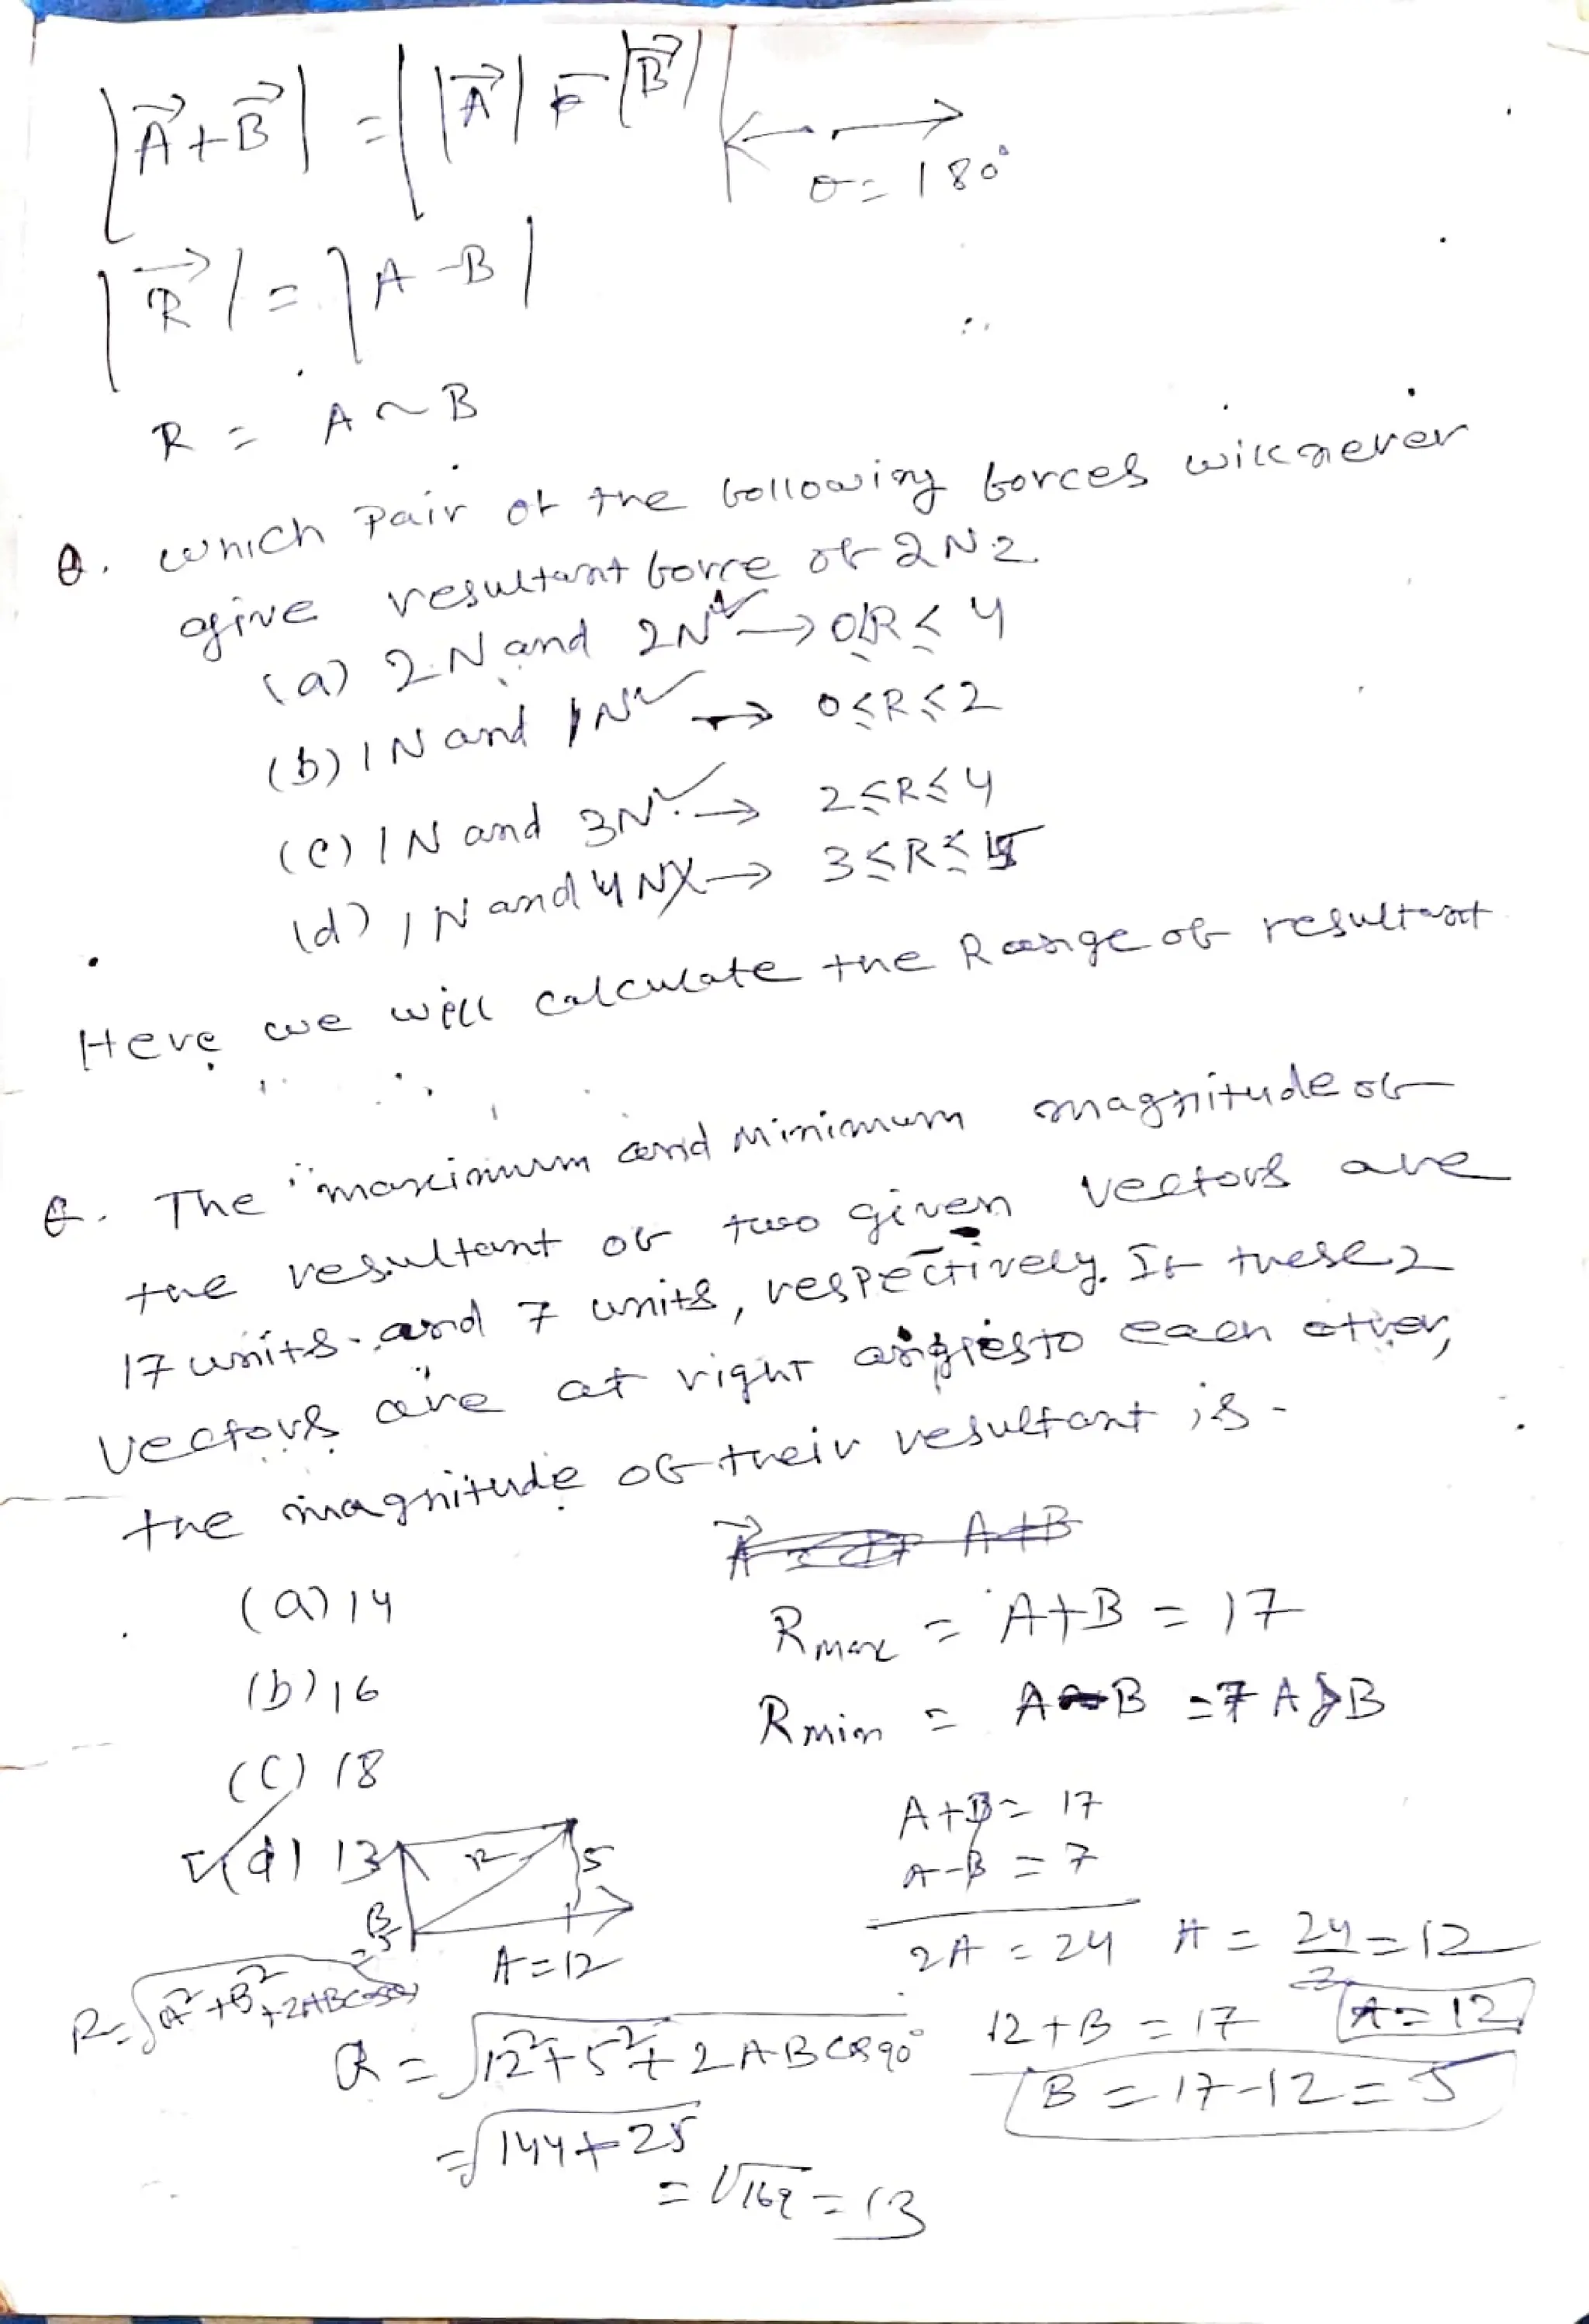 |A⃗+B⃗| = ||A⃗| - |B⃗||
θ = 180°
|R⃗| = |A-B|
R = A ~ B
Q. which Pair of the following forces will never
give resultant force of 2N?
(a) 2N and 2N ✓ → 0≤R≤4
(b) 1N and 1N ✓ → 0≤R≤2
(c) 1N and 3N ✓ → 2≤R≤4
(d) 1N and 4N X → 3≤R≤5
Here we will calculate the Range of resultant
Q. The maximum and Minimum magnitude of
the resultant of two given vectors are
17 units and 7 units, respectively. If these 2
vectors are at right angles to each other,
the magnitude of their resultant is -
A+B
(a) 14
R max = A+B = 17
(b) 16
R min = A-B = 7 A>B
(c) 18
A+B = 17
(d) 13
R 5
A-B = 7
B=5
A=12
2A = 24 A = 24/2 = 12
R=√A²+B²+2ABcosθ
12+B = 17 A=12
R = √12²+5²+2ABcos90°
B = 17-12 = 5
= √144+25
= √169 = 13